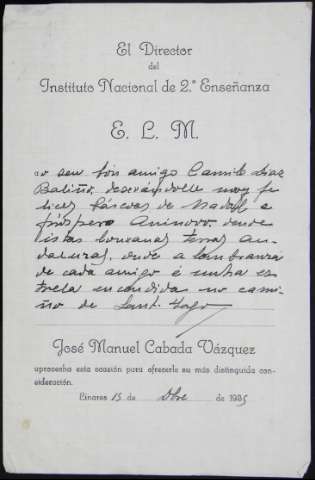 El Director
del
Instituto Nacional de 2.ª Enseñanza
E. L. M.
ao seu bon amigo Camilo Díaz
Baliño, deseándolle moy fe
lices Páscoas de Nadal e
próspero Aninovo, dende
istas louxanas terras an-
daluzas, onde a lembranza
de cada amigo é unha es
trela encendida no cami-
ño de Sant-Yago
José Manuel Cabada Vázquez
aprovecha esta ocasión para ofrecerle su más distinguida con-
sideración.
Linares 15 de Dbre de 1935